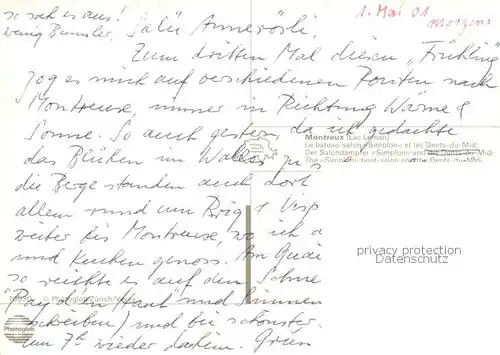 so sah es aus!
wenig Bummler.
1. Mai 91
morgens
Salü Annerösli,
Zum dritten Mal diesen "Frühling"
zog es mich auf verschiedenen Routen nach
Montreux, immer in Richtung Wärme &
Sonne. So auch gestern, da ich gedachte
das Blühen im Wallis zu s
die Berge standen auch dort
allem rund um Brig & Visp
weiter bis Montreux, wo ich d
und Kuchen genoss. Am Quai
so reichte es auf den
"Pay den Haut" und
schreiben) und bei schönster
um 7h wieder daheim.
Montreux (Lac Léman)
Le bateau-salon «Simplon» et les Dents-du-Midi
Der Salondampfer «Simplon» und die Dents-du-Midi
The «Simplon» boat-salon and the Dents-du-Midi
privacy protection
Datenschutz
© Photoglob Zürich/Vevey
Photoglob